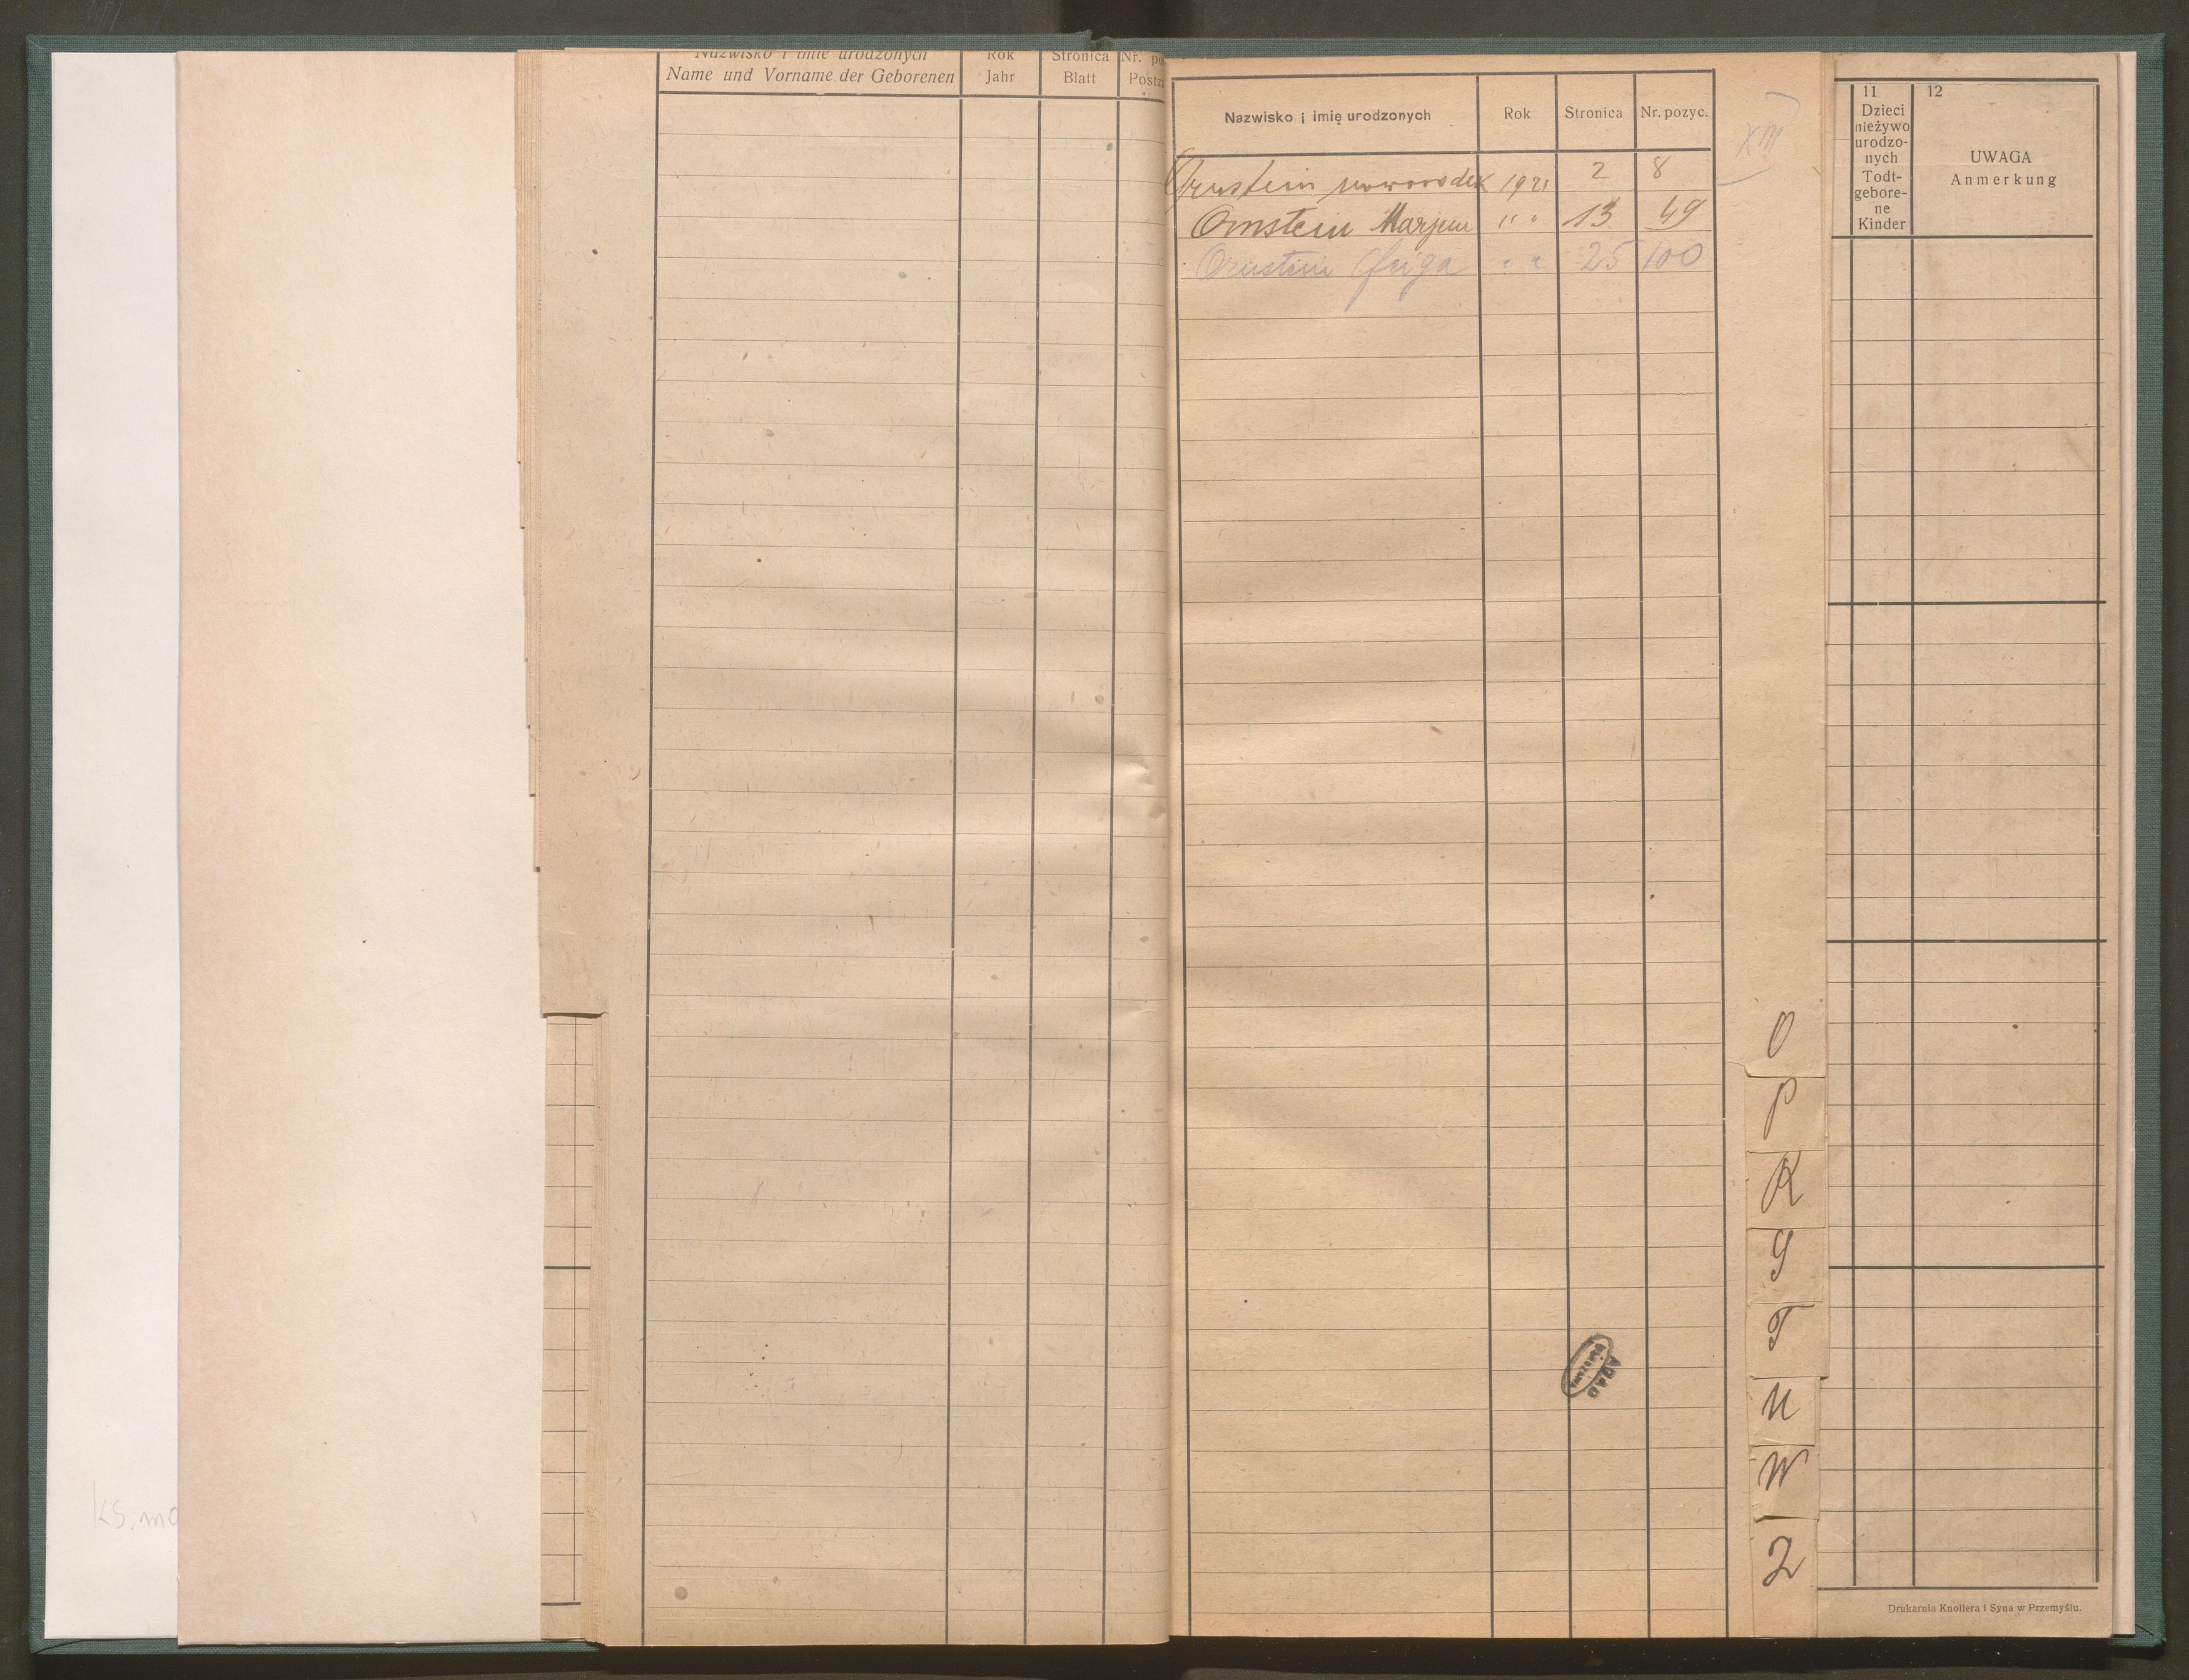 Nazwisko i imię urodzonych Rok Stronica Nr. po
Name und Vorname der Geborenen Jahr Blatt Postz
Nazwisko i imię urodzonych Rok Stronica Nr. pozyc.
Ornstein noworodek 1921 2 8
Ornstein Marjem " " 13 49
Ornstein Feiga " " 25 100
XIII
O
P
R
S
T
U
W
Z
11 12
Dzieci
nieżywo
urodzo-
nych
Todt-
gebore-
ne
Kinder
UWAGA
Anmerkung
AGAD
WARSZAWA
ks. mo
Drukarnia Knollera i Syna w Przemyślu.